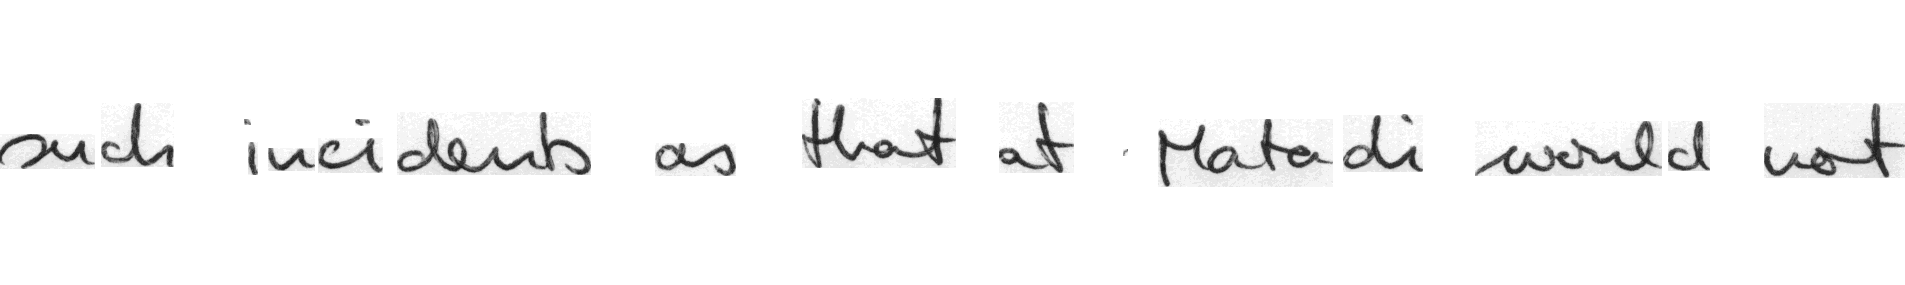 such incidents as that at Matadi would not